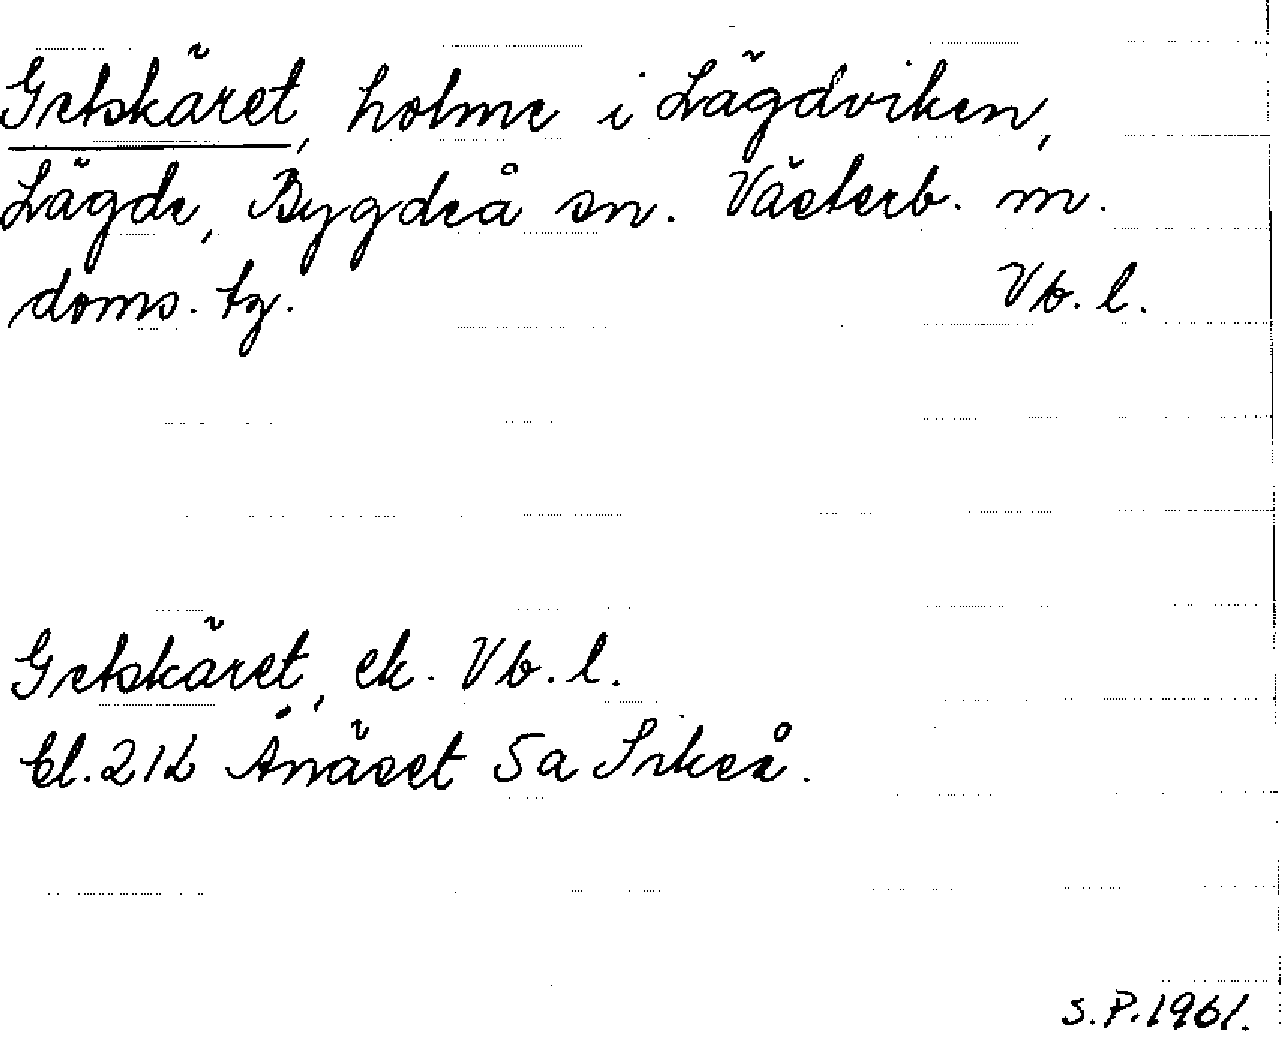 Getskäret, holme i Lägdviken,
Lägde, Bygdeå sn. Västerb. m.
doms. tg. Vb. l.
Getskäret, ek. Vb. l.
bl. 212 Ånäset 5a Sikeå.
S.P. 1961.